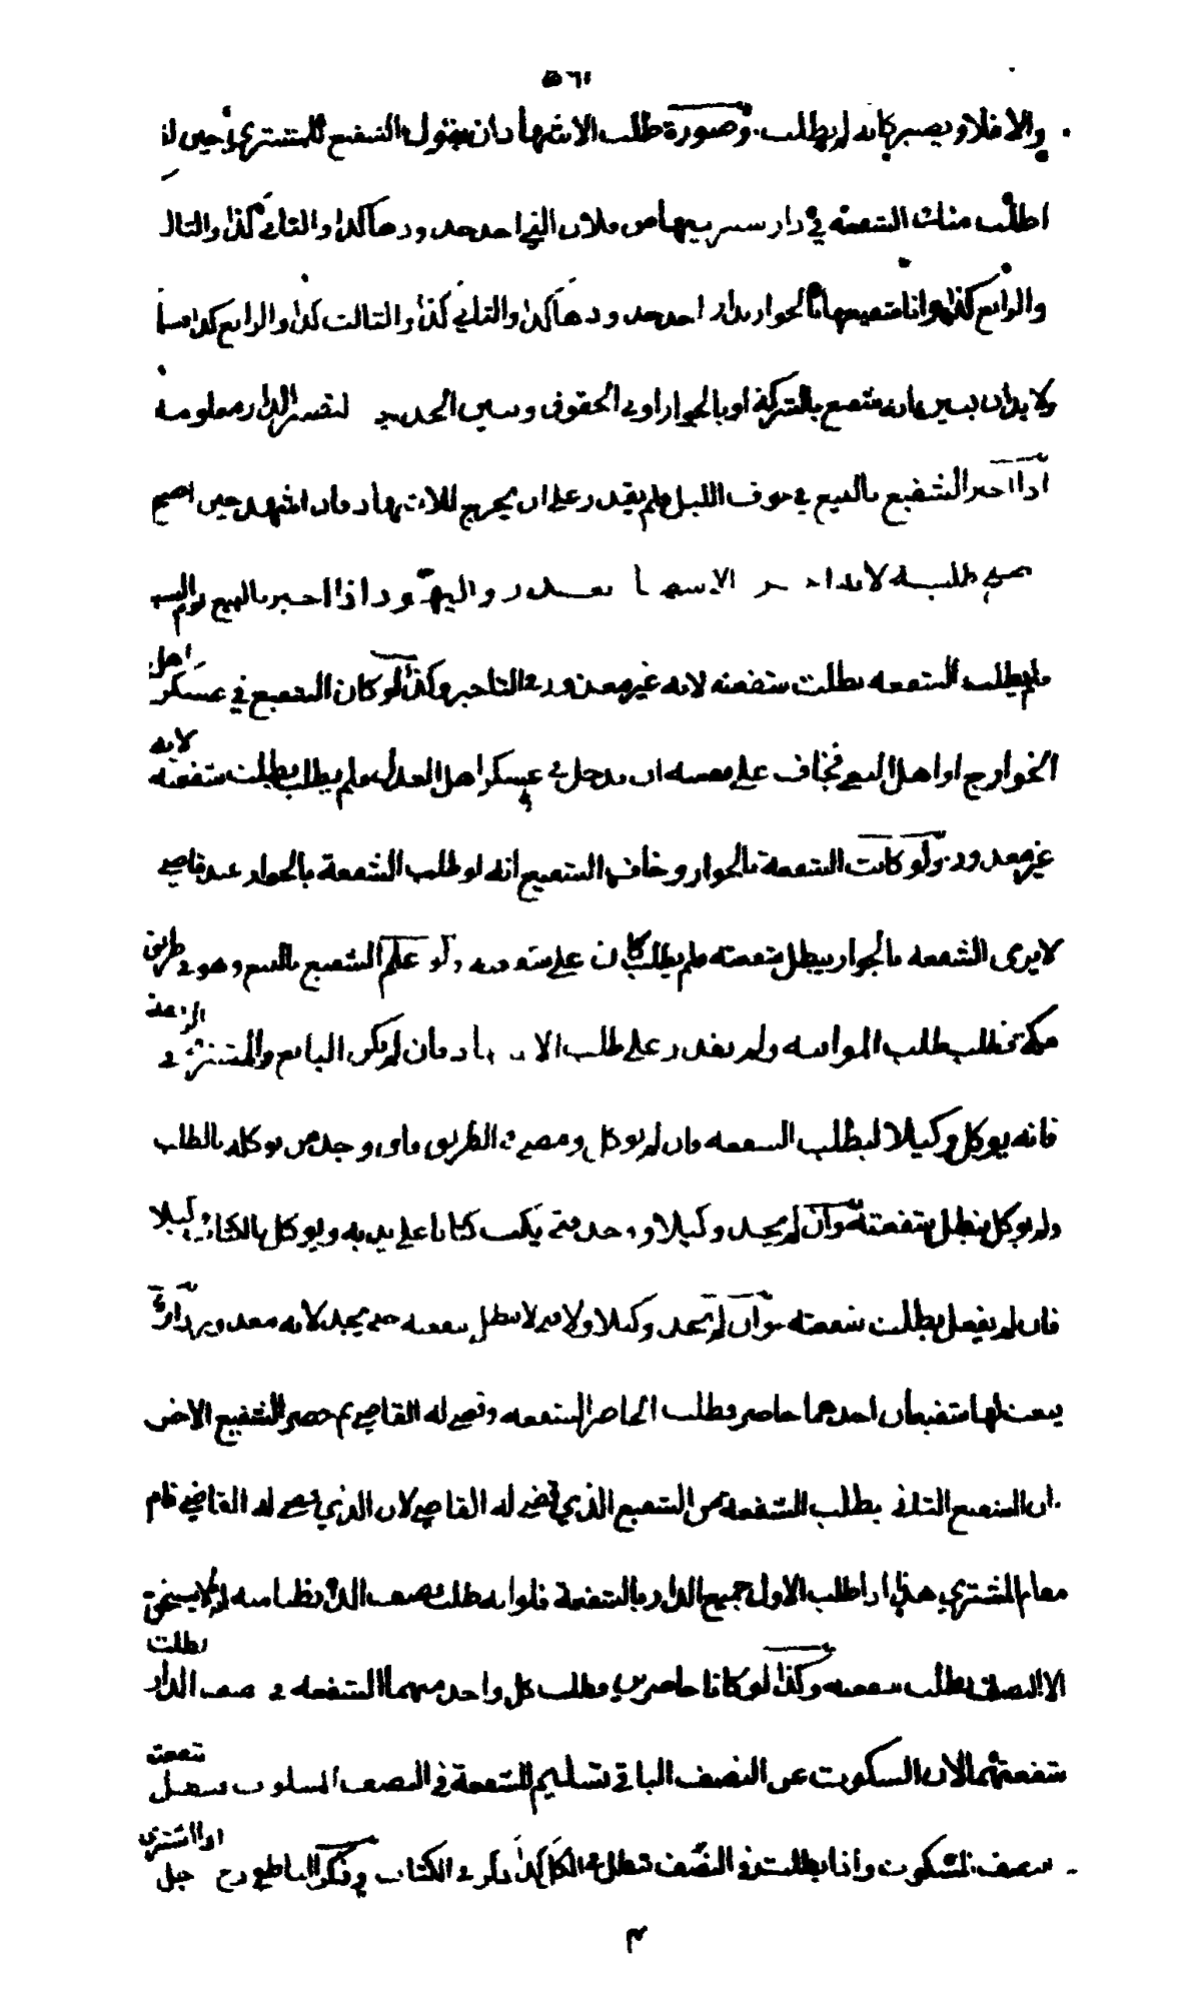 ٥٦١
والا فلا ويصير كانه لم يطلب وصورة طلب الاشهاد ان يقول الشفيع للمشتري حين
اطلب منك الشفعة في دار اشتريتها من فلان التي احد حدودها كذا والثاني كذا والثالث
والرابع كذا وانا شفيعها بالجوار بدار احد حدودها كذا والثاني كذا والثالث كذا والرابع كذا
ولا بد ان يبين بانه شفيع بالشركة او بالجوار او في الحقوق ويبين الحدود لتصير الدار معلومة
اذا اخبر الشفيع بالبيع في جوف الليل فلم يقدر على ان يخرج للاشهاد فان اشهد حين اصبح
صح طلبه لانه اخر الاشهاد بعذر واليهودي اذا اخبر بالبيع يوم السبت
فلم يطلب الشفعة بطلت شفعته لانه غير معذور في التاخير وكذا لو كان الشفيع في عسكر اهل
الخوارج او اهل البغي فخاف على نفسه ان يدخل في عسكر اهل العدل فلم يطلب بطلت شفعته لانه
غير معذور ولو كانت الشفعة بالجوار وخاف الشفيع انه لو طلب الشفعة بالجوار عند قاضي
لا يرى الشفعة بالجوار يبطل شفعته فلم يطلب كان على شفعته ولو علم الشفيع بالبيع وهو في طريق
مكة فطلب طلب المواثبة ولم يقدر على طلب الاشهاد فان لم يكن البايع والمشتري في
فانه يوكل وكيلا ليطلب الشفعة فان لم يوكل ومضى في الطريق فان وجد من يوكله بالطلب
ولم يوكل يبطل شفعته وان لم يجد وكيلا ووجد فيجا يكتب كتابا على يديه ويوكل بالكتاب وكيلا
فان لم يفعل بطلت شفعته وان لم يجد وكيلا ولا فيجا لا تبطل شفعته حتى يجد لانه معذور دار
بيعت لها شفيعان احدهما حاضر فطلب الحاضر الشفعة وقضى له القاضي ثم حضر الشفيع الاخر
فان الشفيع الثاني يطلب الشفعة من الشفيع الذي قضى له القاضي لان الذي قضى له القاضي قام
مقام المشتري هذا اذا طلب الاول جميع الدار بالشفعة فلو انه طلب نصف الدار ظنا منه انه لا يستحق
الا النصف بطلت شفعته وكذا لو كانا حاضرين فطلب كل واحد منهما الشفعة في نصف الدار بطلت
شفعتهما لان السكوت عن النصف الباقي تسليم للشفعة في النصف المسكوت فتبطل شفعته
في نصف المسكوت واذا بطلت في النصف تبطل في الكل كذا ذكر في الكتاب وذكر الناطفي رح رجل اذا اشترى